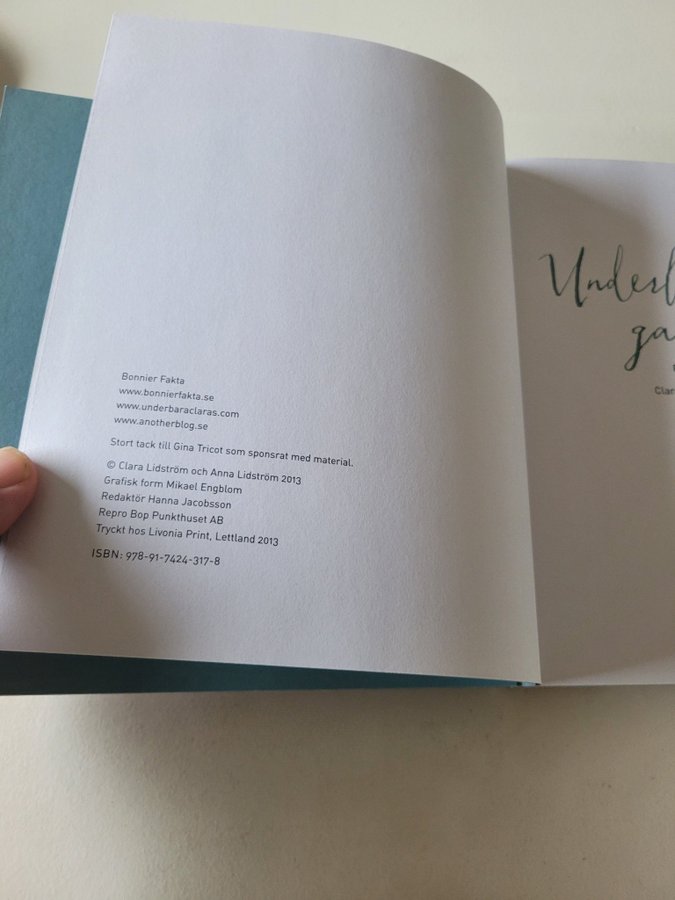 Bonnier Fakta
www.bonnierfakta.se
www.underbaraclaras.com
www.anotherblog.se
Stort tack till Gina Tricot som sponsrat med material.
© Clara Lidström och Anna Lidström 2013
Grafisk form Mikael Engblom
Redaktör Hanna Jacobsson
Repro Bop Punkthuset AB
Tryckt hos Livonia Print, Lettland 2013
ISBN: 978-91-7424-317-8